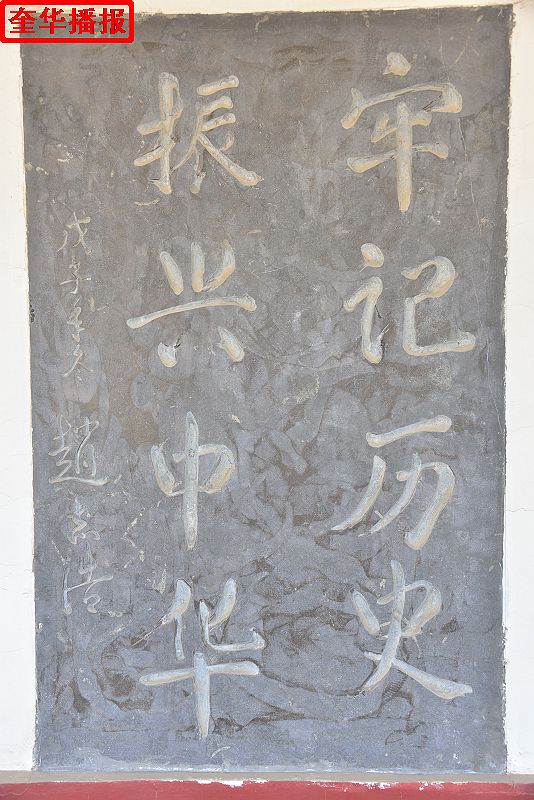 奎华播报
牢记历史
振兴中华
戊子年冬 赵